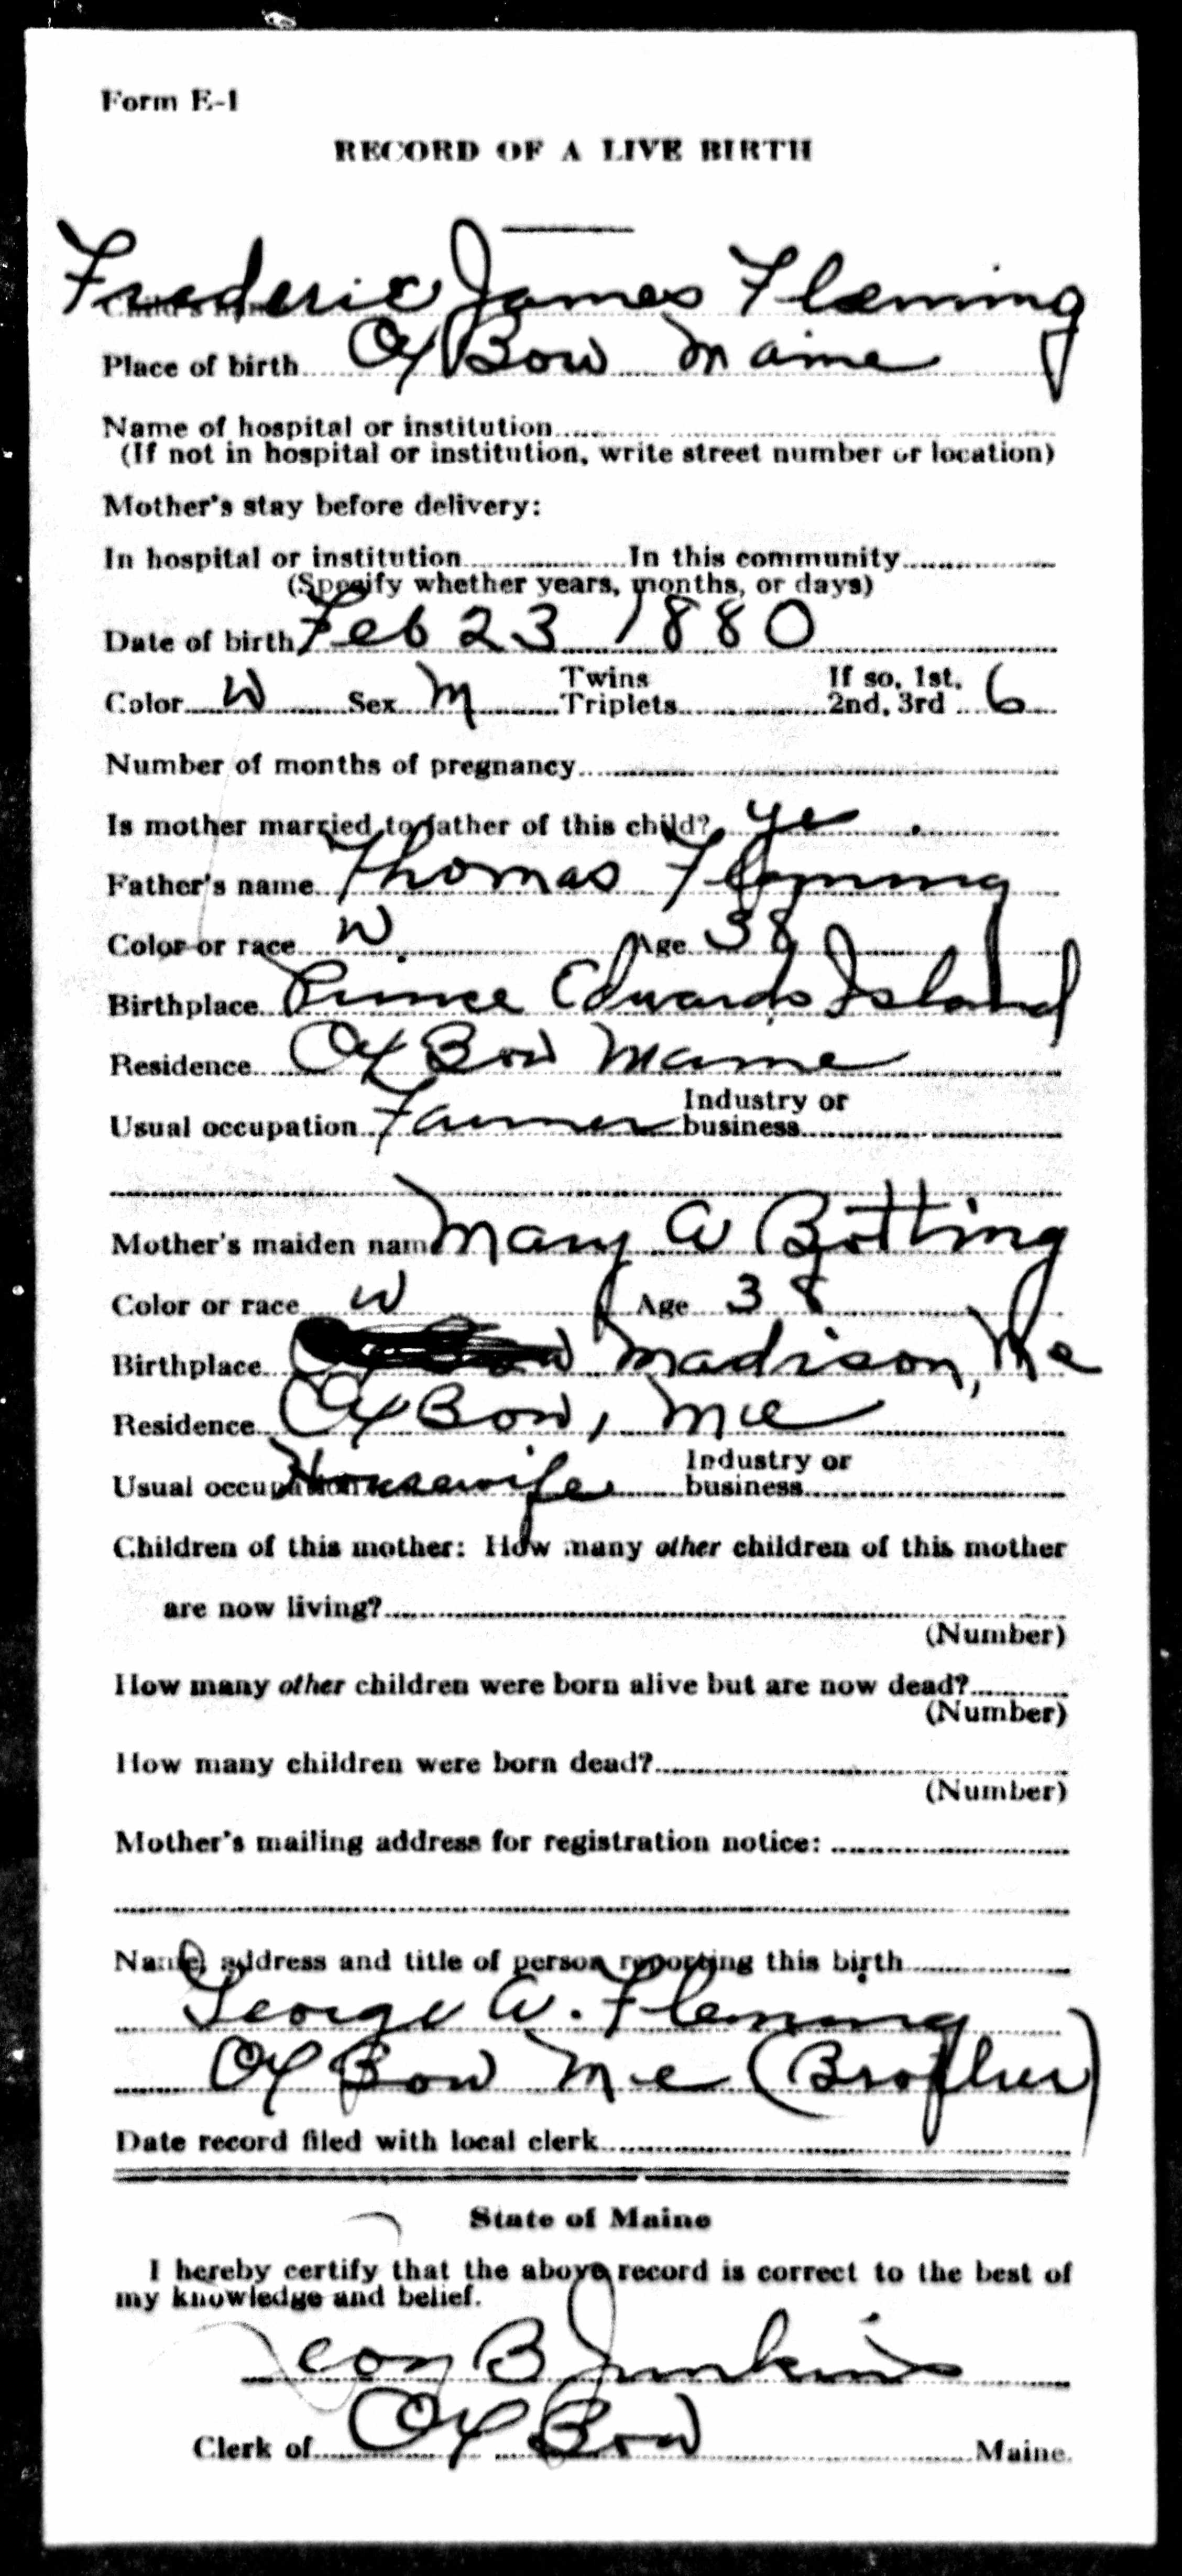 Form E-1
RECORD OF A LIVE BIRTH
Frederic James Fleming
Place of birth Ox Bow Maine
Name of hospital or institution
(If not in hospital or institution, write street number or location)
Mother's stay before delivery:
In hospital or institution In this community
(Specify whether years, months, or days)
Date of birth Feb 23 1880
Color W Sex M Twins Triplets If so, 1st, 2nd, 3rd 6
Number of months of pregnancy
Is mother married to father of this child? ye
Father's name Thomas Fleming
Color or race W Age 38
Birthplace Prince Edwards Island
Residence Ox Bow Maine
Usual occupation Farmer Industry or business
Mother's maiden name Mary A Botting
Color or race W Age 38
Birthplace Madison, Me
Residence Ox Bow, Me
Usual occupation Housewife Industry or business
Children of this mother: How many other children of this mother
are now living?
(Number)
How many other children were born alive but are now dead?
(Number)
How many children were born dead?
(Number)
Mother's mailing address for registration notice:
Name, address and title of person reporting this birth
George W. Fleming
Ox Bow Me (Brother)
Date record filed with local clerk
State of Maine
I hereby certify that the above record is correct to the best of
my knowledge and belief.
Leon B Junkins
Clerk of Ox Bow Maine.